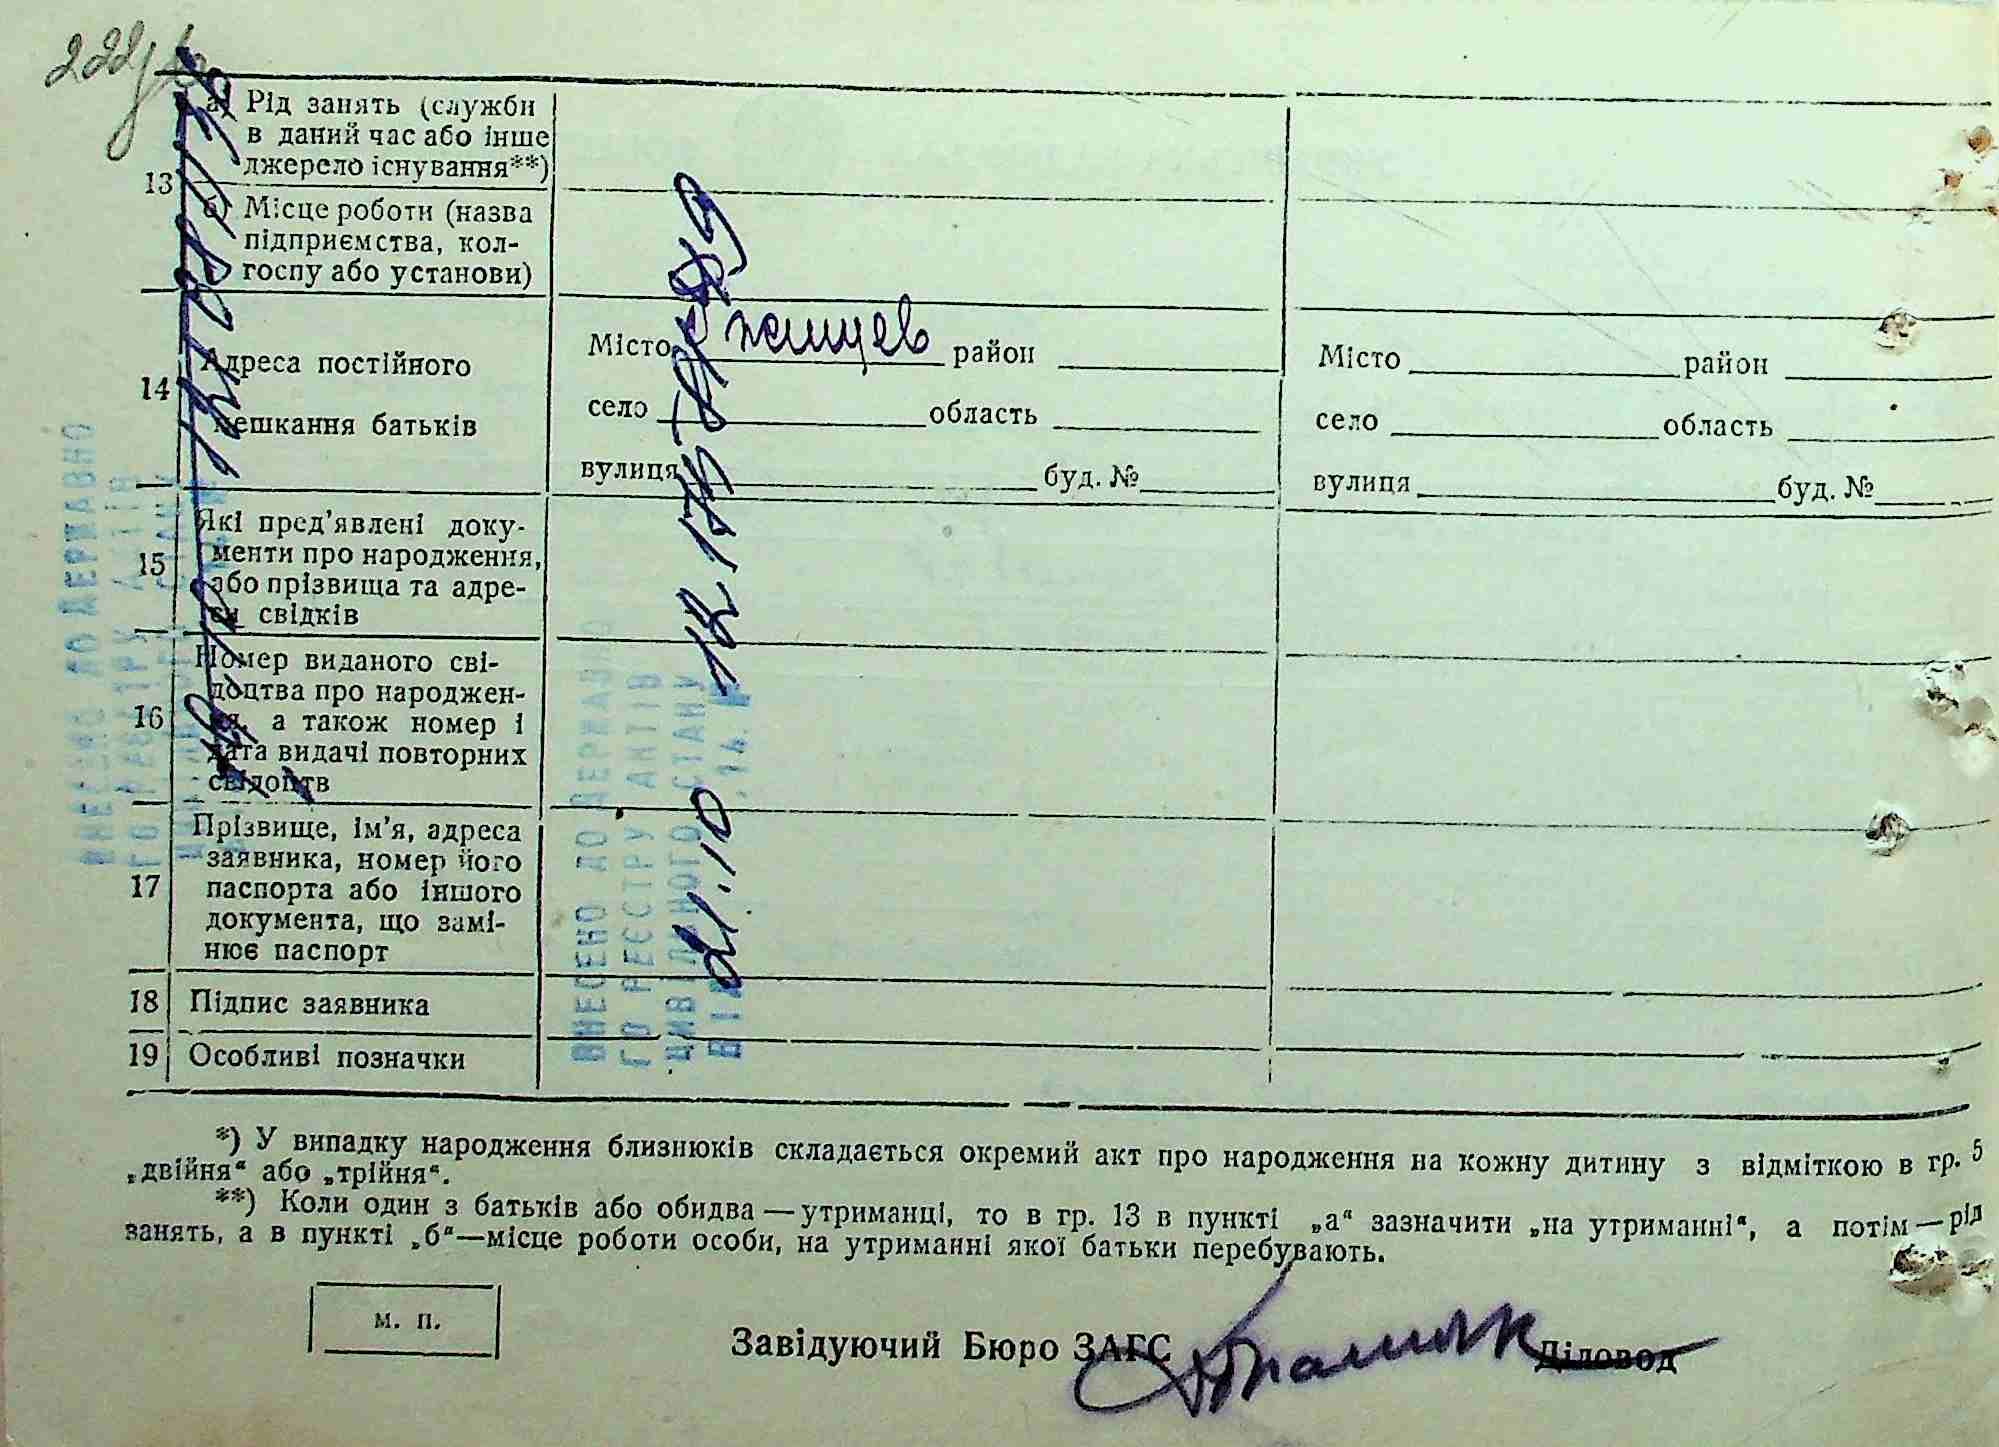 13
а) Рід занять (служби
в даний час або інше
джерело існування**)
б) Місце роботи (назва
підприємства, кол-
госпу або установи)
14
Адреса постійного
мешкання батьків
Місто Ржищев район
село область
вулиця буд. №
Місто район
село область
вулиця буд. №
15
Які пред'явлені доку-
менти про народження,
або прізвища та адре-
си свідків
16
Номер виданого сві-
доцтва про народжен-
ня, а також номер і
дата видачі повторних
свідоцтв
17
Прізвище, ім'я, адреса
заявника, номер його
паспорта або іншого
документа, що замі-
нює паспорт
18 Підпис заявника
19 Особливі позначки
ВНЕСЕНО ДО ДЕРЖАВНО
ГО РЕЄСТРУ АКТІВ
ЦИВІЛЬНОГО СТАНУ
ВНЕСЕНО ДО ДЕРЖАВНО
ГО РЕЄСТРУ АКТІВ
ЦИВІЛЬНОГО СТАНУ
21.10
*) У випадку народження близнюків складається окремий акт про народження на кожну дитину з відміткою в гр. 5
„двійня“ або „трійня“.
**) Коли один з батьків або обидва — утриманці, то в гр. 13 в пункті „а“ зазначити „на утриманні“, а потім — рід
занять, а в пункті „б“—місце роботи особи, на утриманні якої батьки перебувають.
м. п.
Завідуючий Бюро ЗАГС Діловод